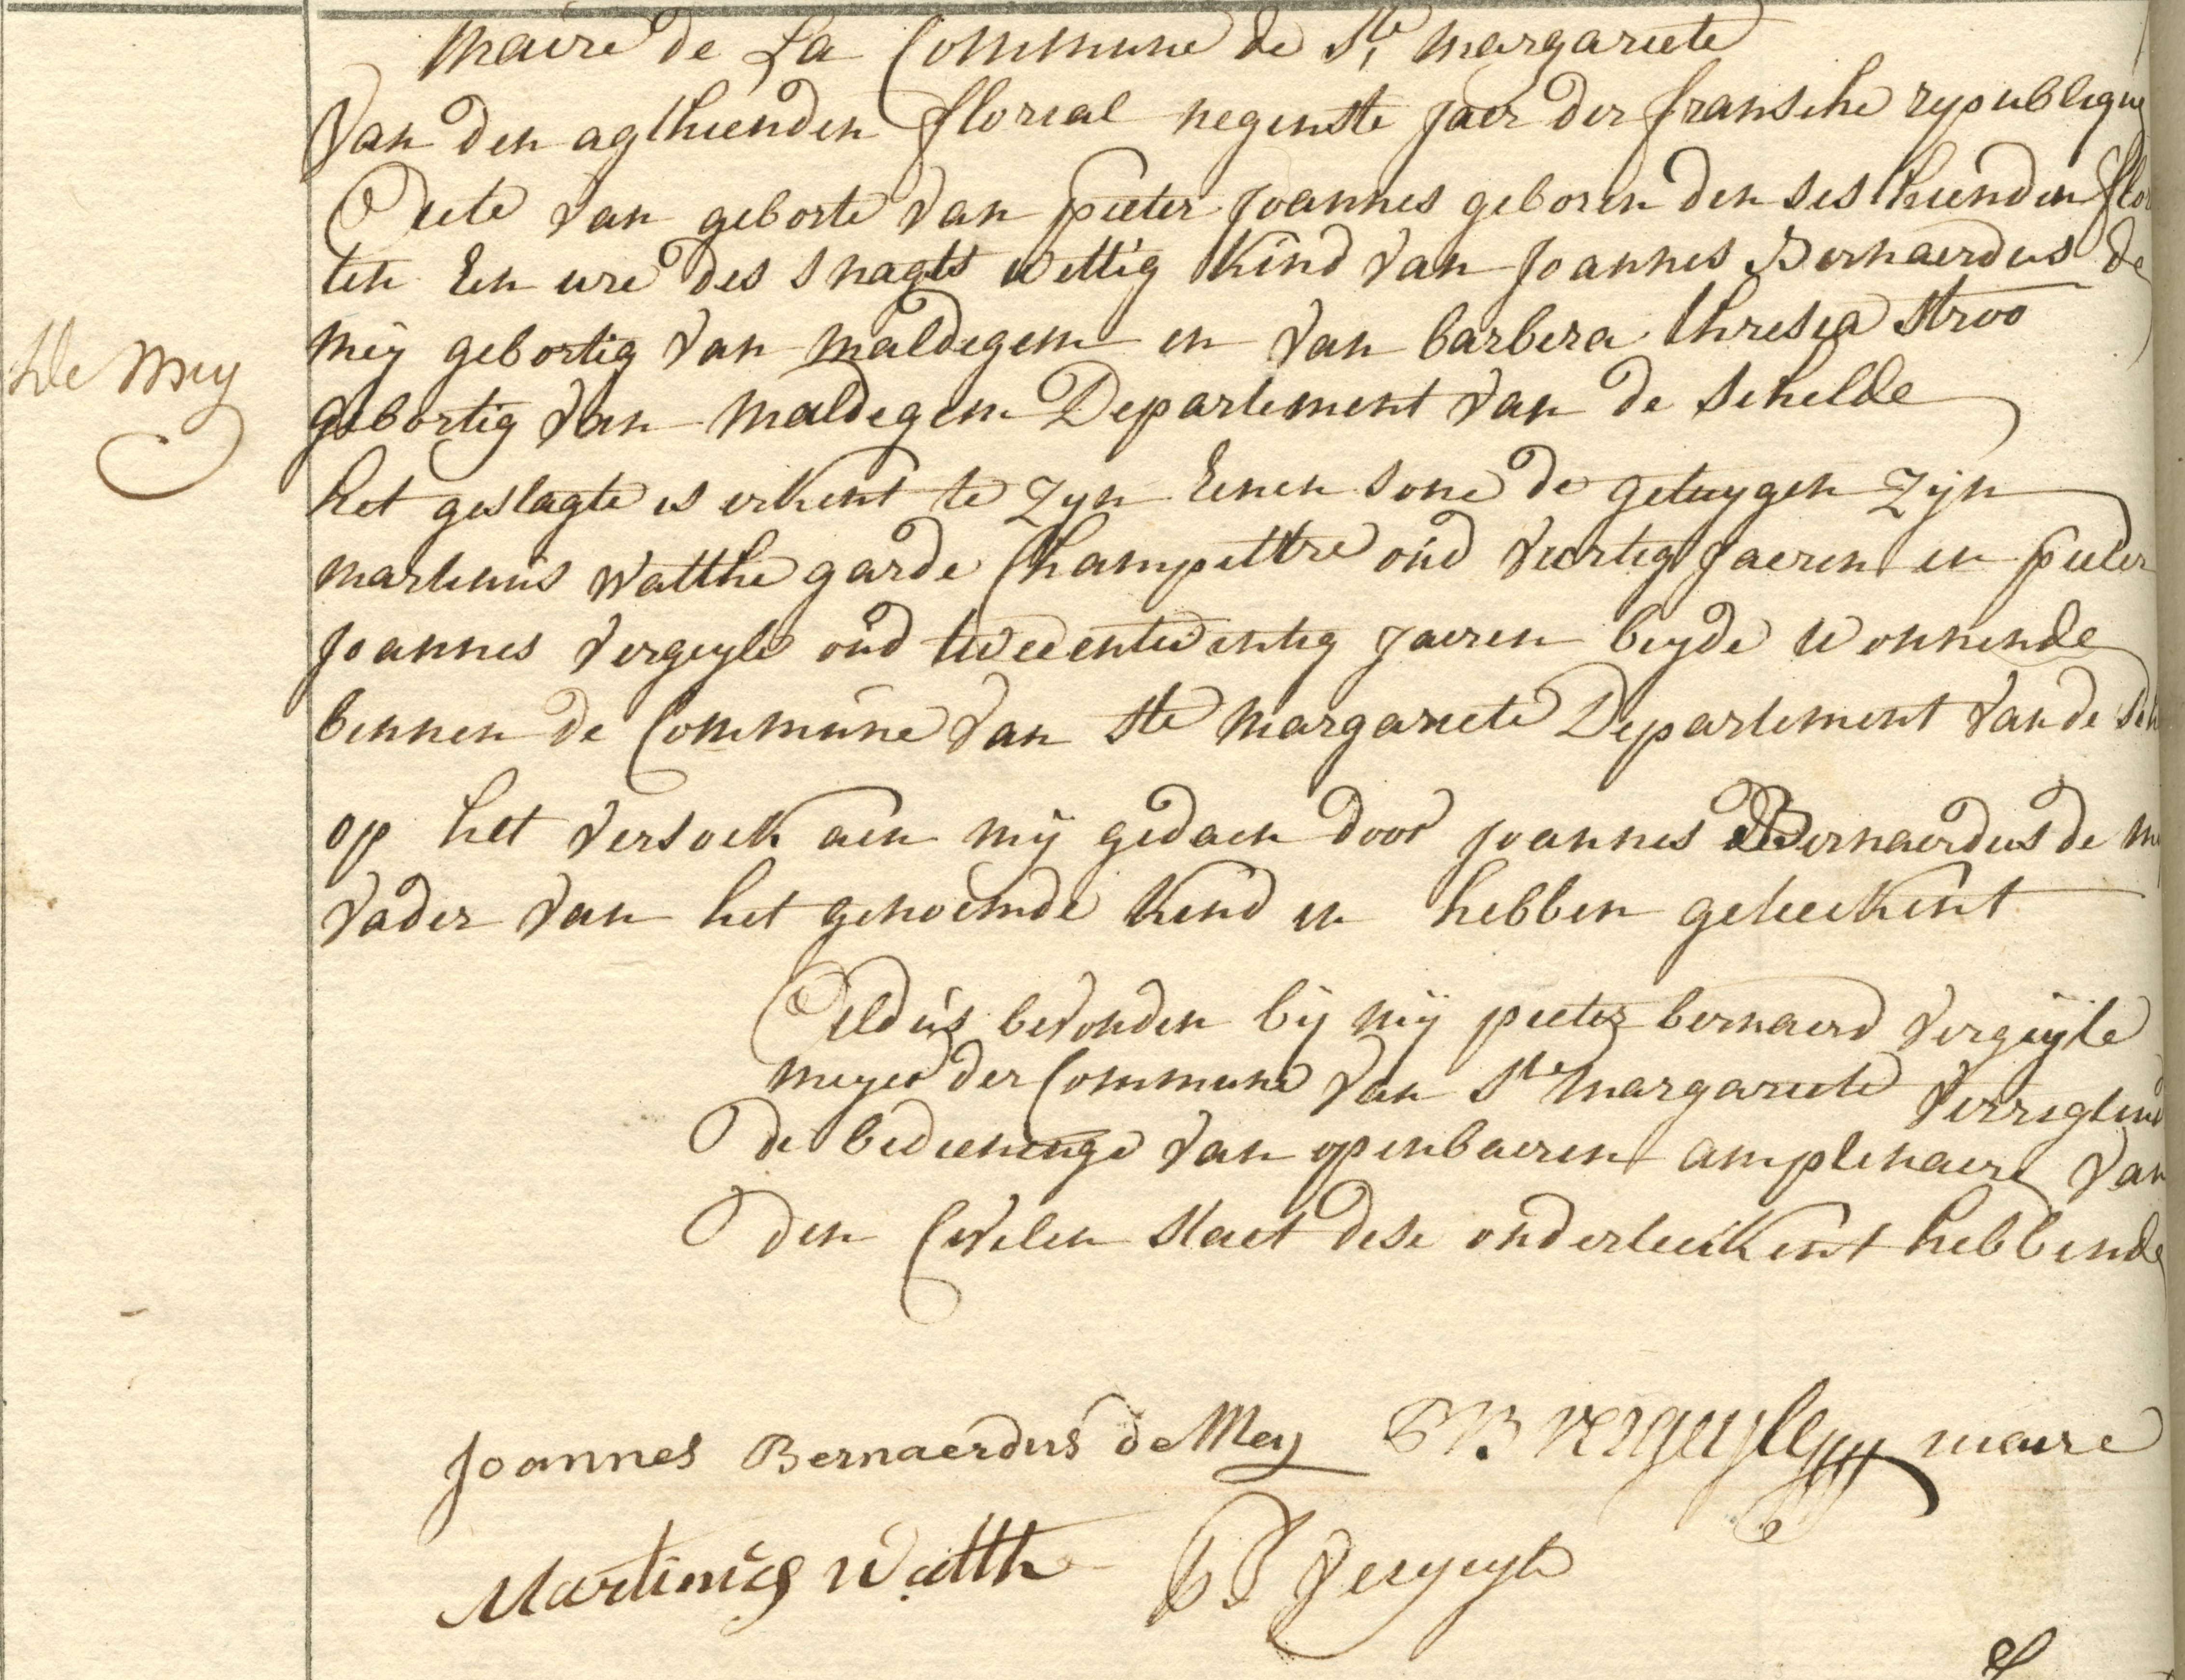 Maire de La Commune de Ste Margariete
Van den agthienden florial negenste jaer der fransche republique
Acte van geborte van pieter joannes geboren den sesthienden flo
ten Een ure des snagts wettig kind van joannes Bernaerdus de
De Meÿ
meÿ gebortig van maldegem en van barbera thresia Stroo
gebortig van maldegem Departement van de Schelde
het geslagte is erkent te zyn Eenen sone de getuygen zyn
martinus watthe garde Champettre oud veertig jaeren en pieter
joannes vergeyle oud tweeentwintig jaeren beyde wonnende
binnen de Commune van Ste Margariete Departement van de Sch
op het versoek aen mij gedaen door joannes Bernaerdus de m
vader van het genoemde kind en hebben geteekent
Aldus bevonden bij mij pieter bernaerd vergeyle
meyer der Commune van Ste Margariete verrigtend
de bedieninge van openbaeren amptenaere van
den Civilen staet dese onderteekent hebbende
Joannes Bernaerdus de Meÿ PB Vergeyle maire
Martinus Watthe PJ Vergeyle